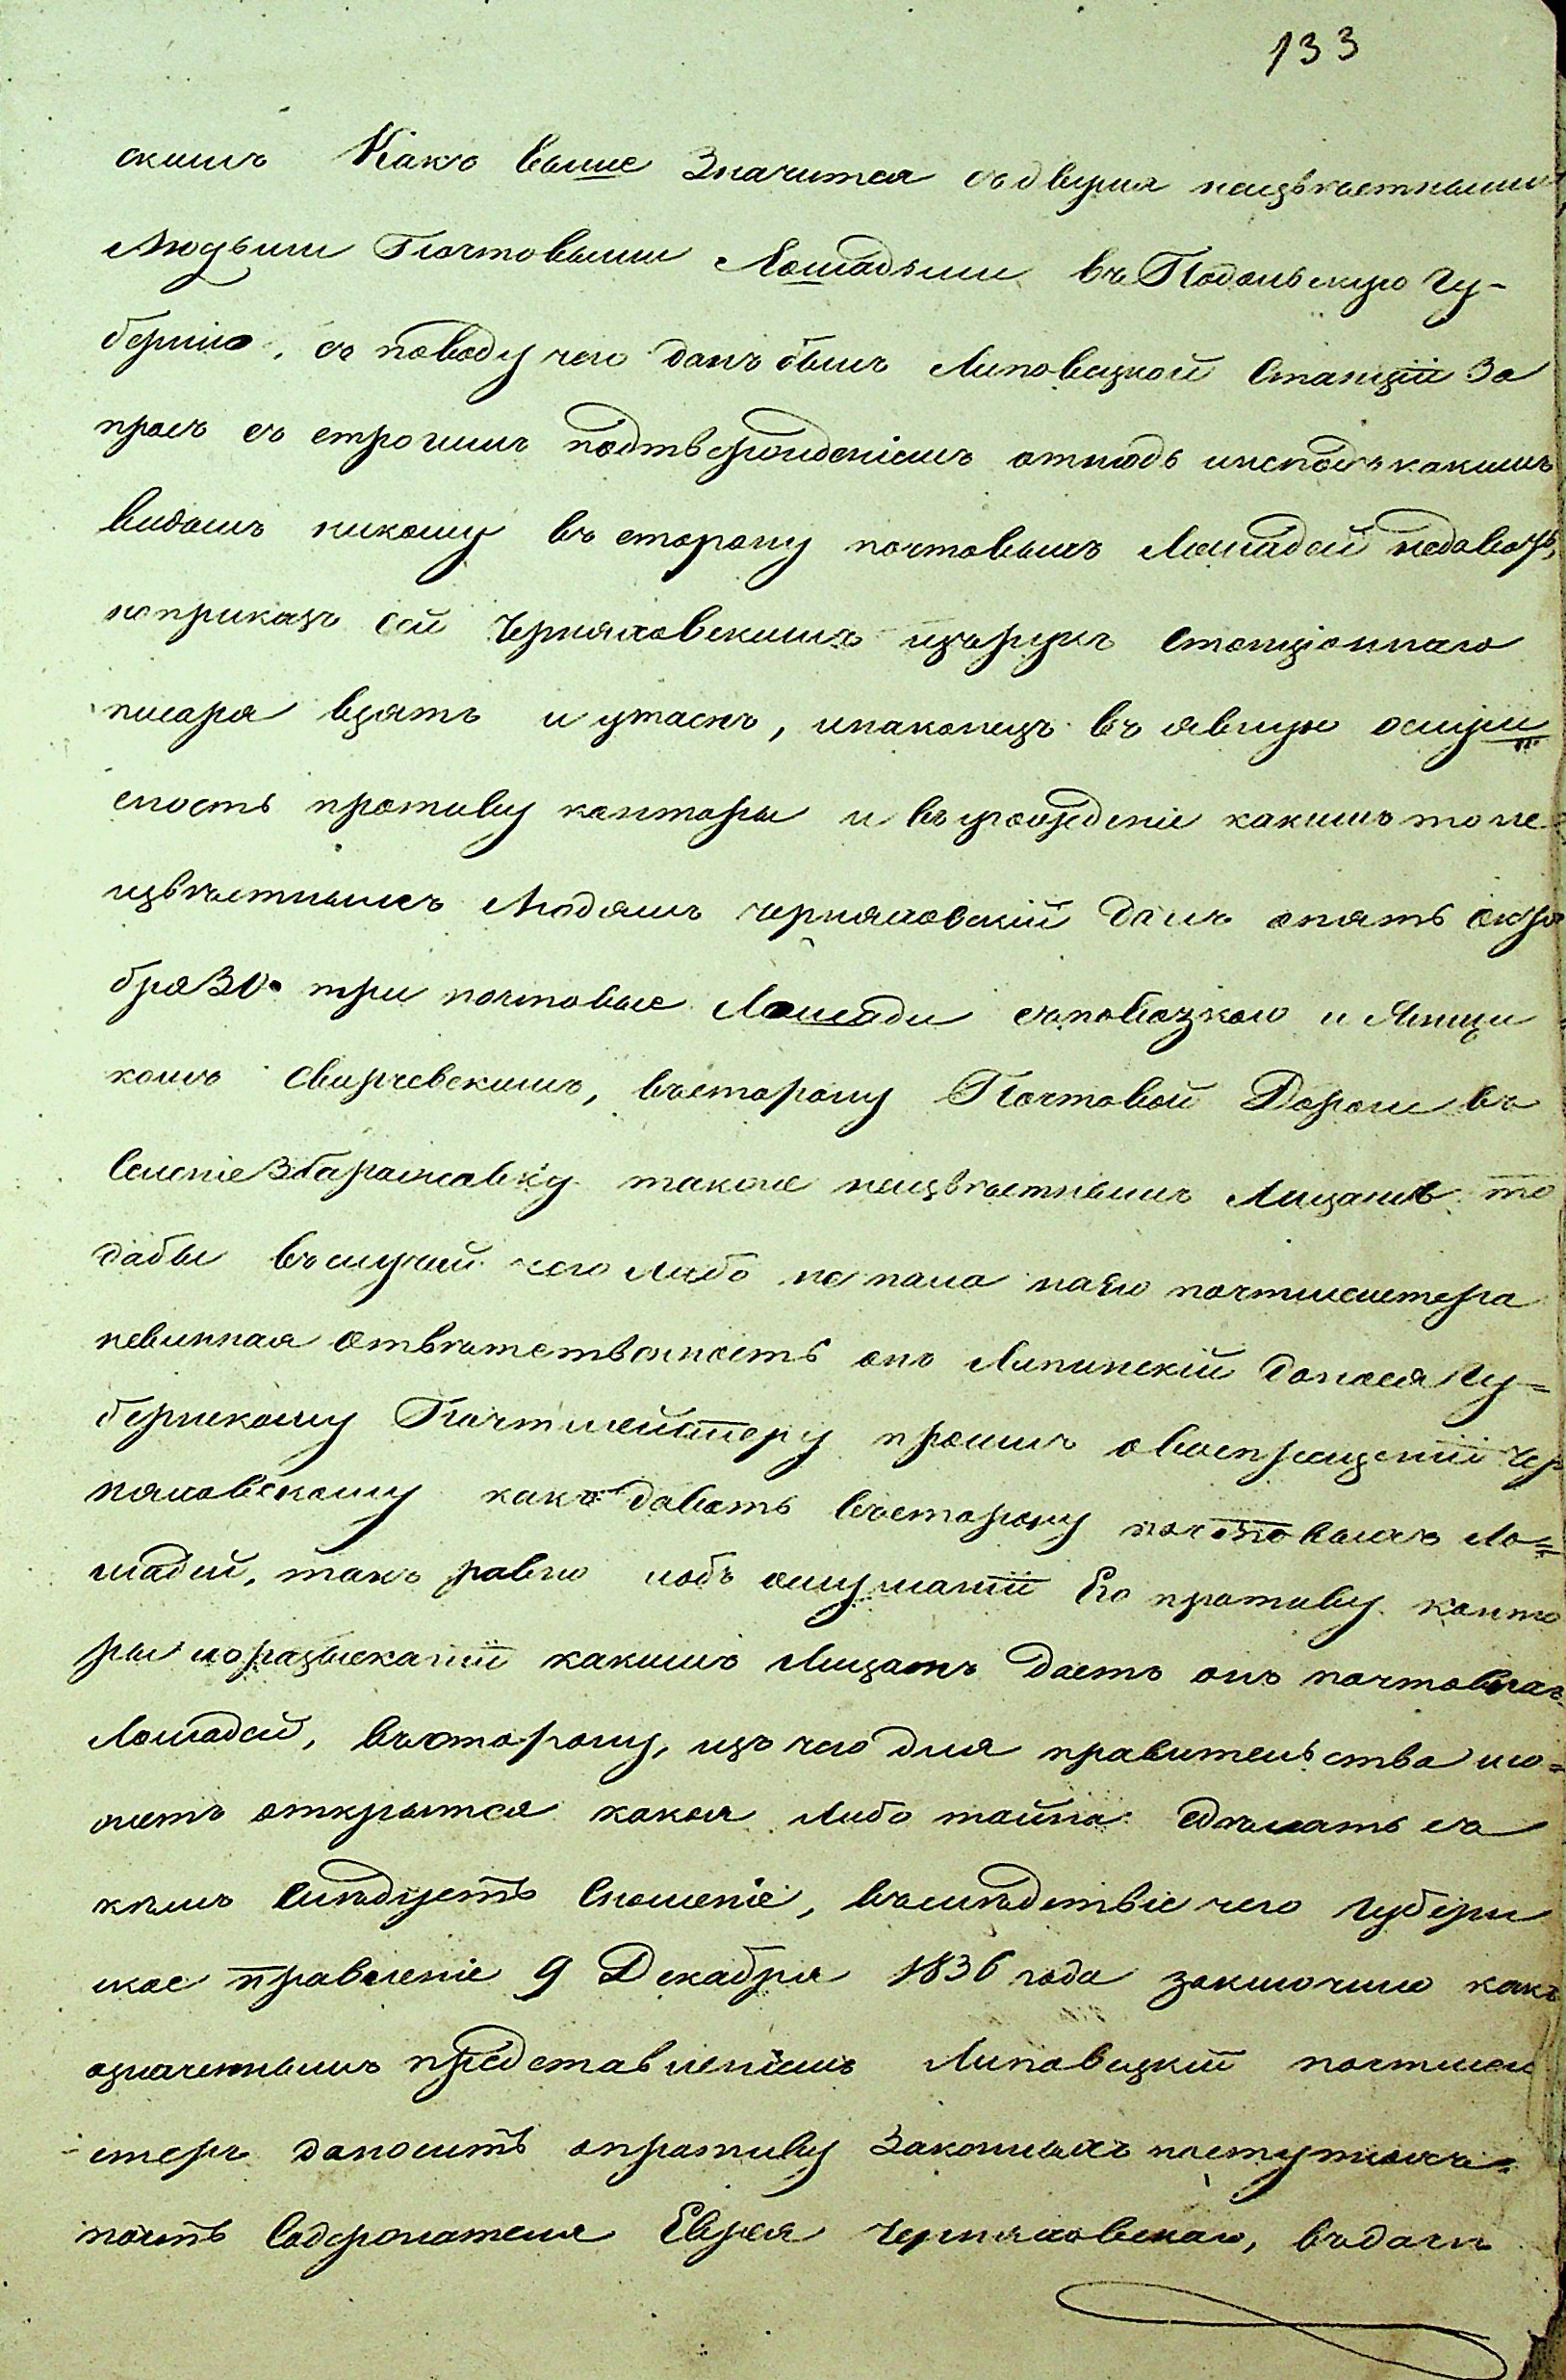 133
скимъ Какъ выше Значится съдвумя неизвѣстными
Людьми Почтовыми Лошадьми въ Подольскую Гу-
бернию. съ поводу чего данъ былъ Липовецкой Станціи За
просъ съ строгимъ подтвержденіемъ отнюдь инеподъ какимъ
видомъ никому въ сторону почтовыхъ Лошадей недавать,
но приказъ сей Черняховскимъ изърукъ Станціоннаго
писаря взятъ и утаенъ, инаконецъ въ явную ослуш
ность противу конторы и въугожденіе какимъ то не
извѣстнымъ Людямъ черняховскій далъ опять октя
бря 30. три почтовые Лошади съповозкою и Ямщи
комъ Свирчевскимъ, въсторону Почтовой Дороги въ
Селеніе Збаражовку также неизвѣстнымъ Лицамъ то
дабы въслучай чего Либо не пала наЕго почтмейстера
невинная Отвѣтственность онъ Липинскій донося Гу=
бернскому Почтмейстеру просилъ овоспрещеніи Чер
няховскому какъ давать въсторону почтовыхъ Ло=
шадей, такъ равно иобъ ослушаніи Его противу конто
ры иоразысканіи какимъ Лицамъ даетъ онъ почтовыхъ
Лошадей, въсторону, изъ чего для правительства мо=
жетъ открытся какая Либо тайна сдѣлать съ
кѣмъ Слѣдуетъ Сношеніе, въслѣдствіе чего Губерн
ское правленіе 9 Декабря 1836 года заключило какъ
означеннымъ представленіемъ Липовецкій почтмей
стеръ доноситъ опротиву Законныхъ поступкахъ
почтъ Содержателя Еврея Черняховскаго, въдачи